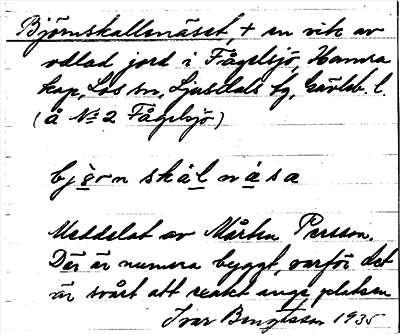 Björnskallenäset, + en vik av
odlad jord i Fågelsjö, Hamra
kap, Los sn, Ljusdals tg, Gävleb. l.
(å No 2 Fågelsjö)
björn skál nása
Meddelat av Mårten Persson.
Där är numera byggt, varför det
är svårt att exakt ange platsen
Ivar Bengtsson 1935